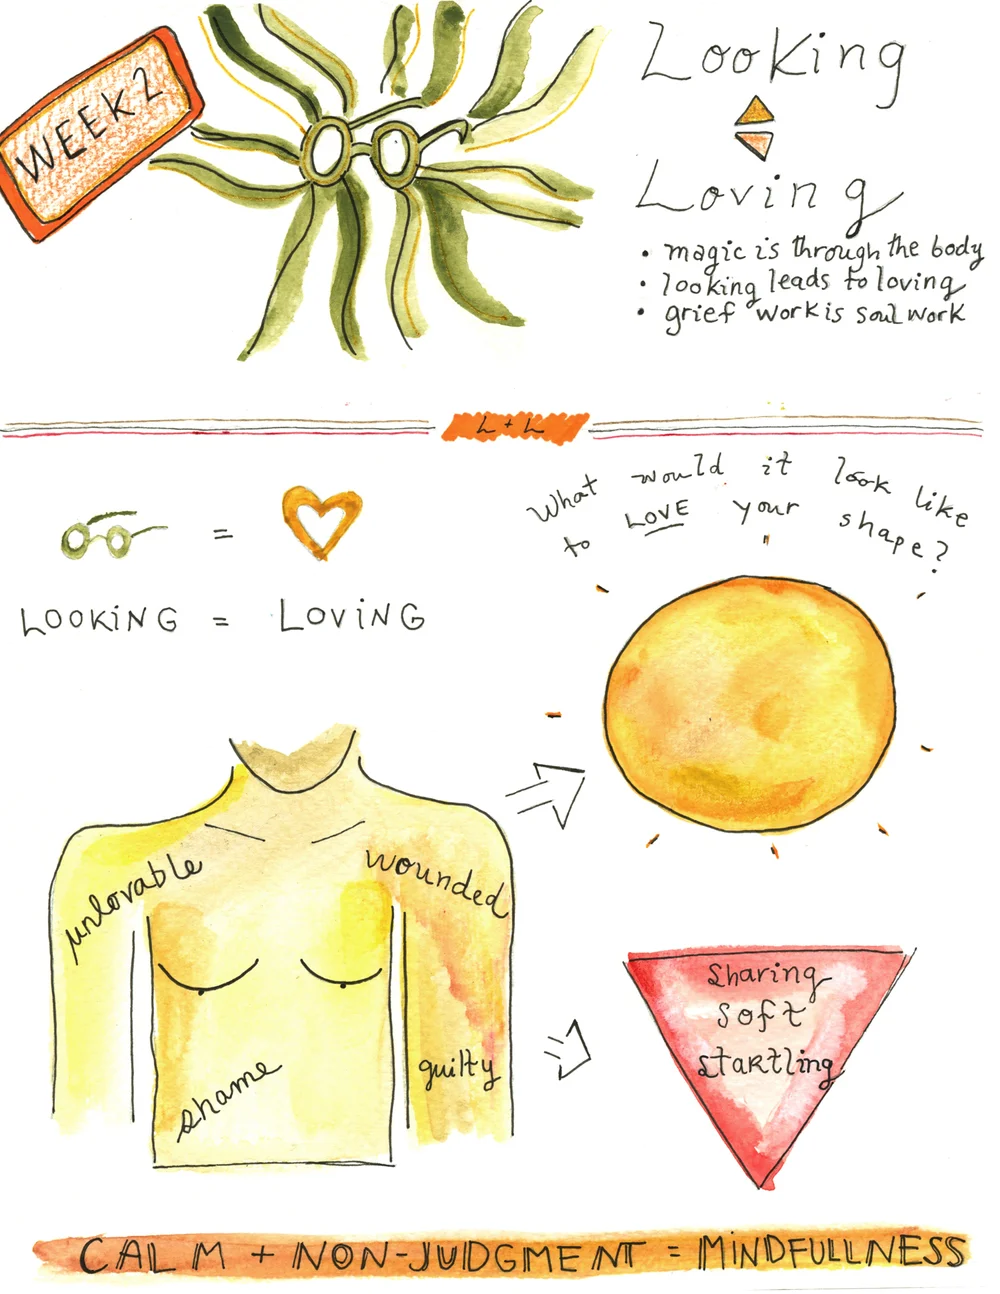 WEEK 2
Looking
Loving
• magic is through the body
• looking leads to loving
• grief work is soul work
L + L
What would it look like
to LOVE your shape?
=
LOOKiNG = LOViNG
unlovable
wounded
shame
guilty
Sharing
Soft
Startling
CALM + NON-JUDGMENT = MiNDFULLNESS